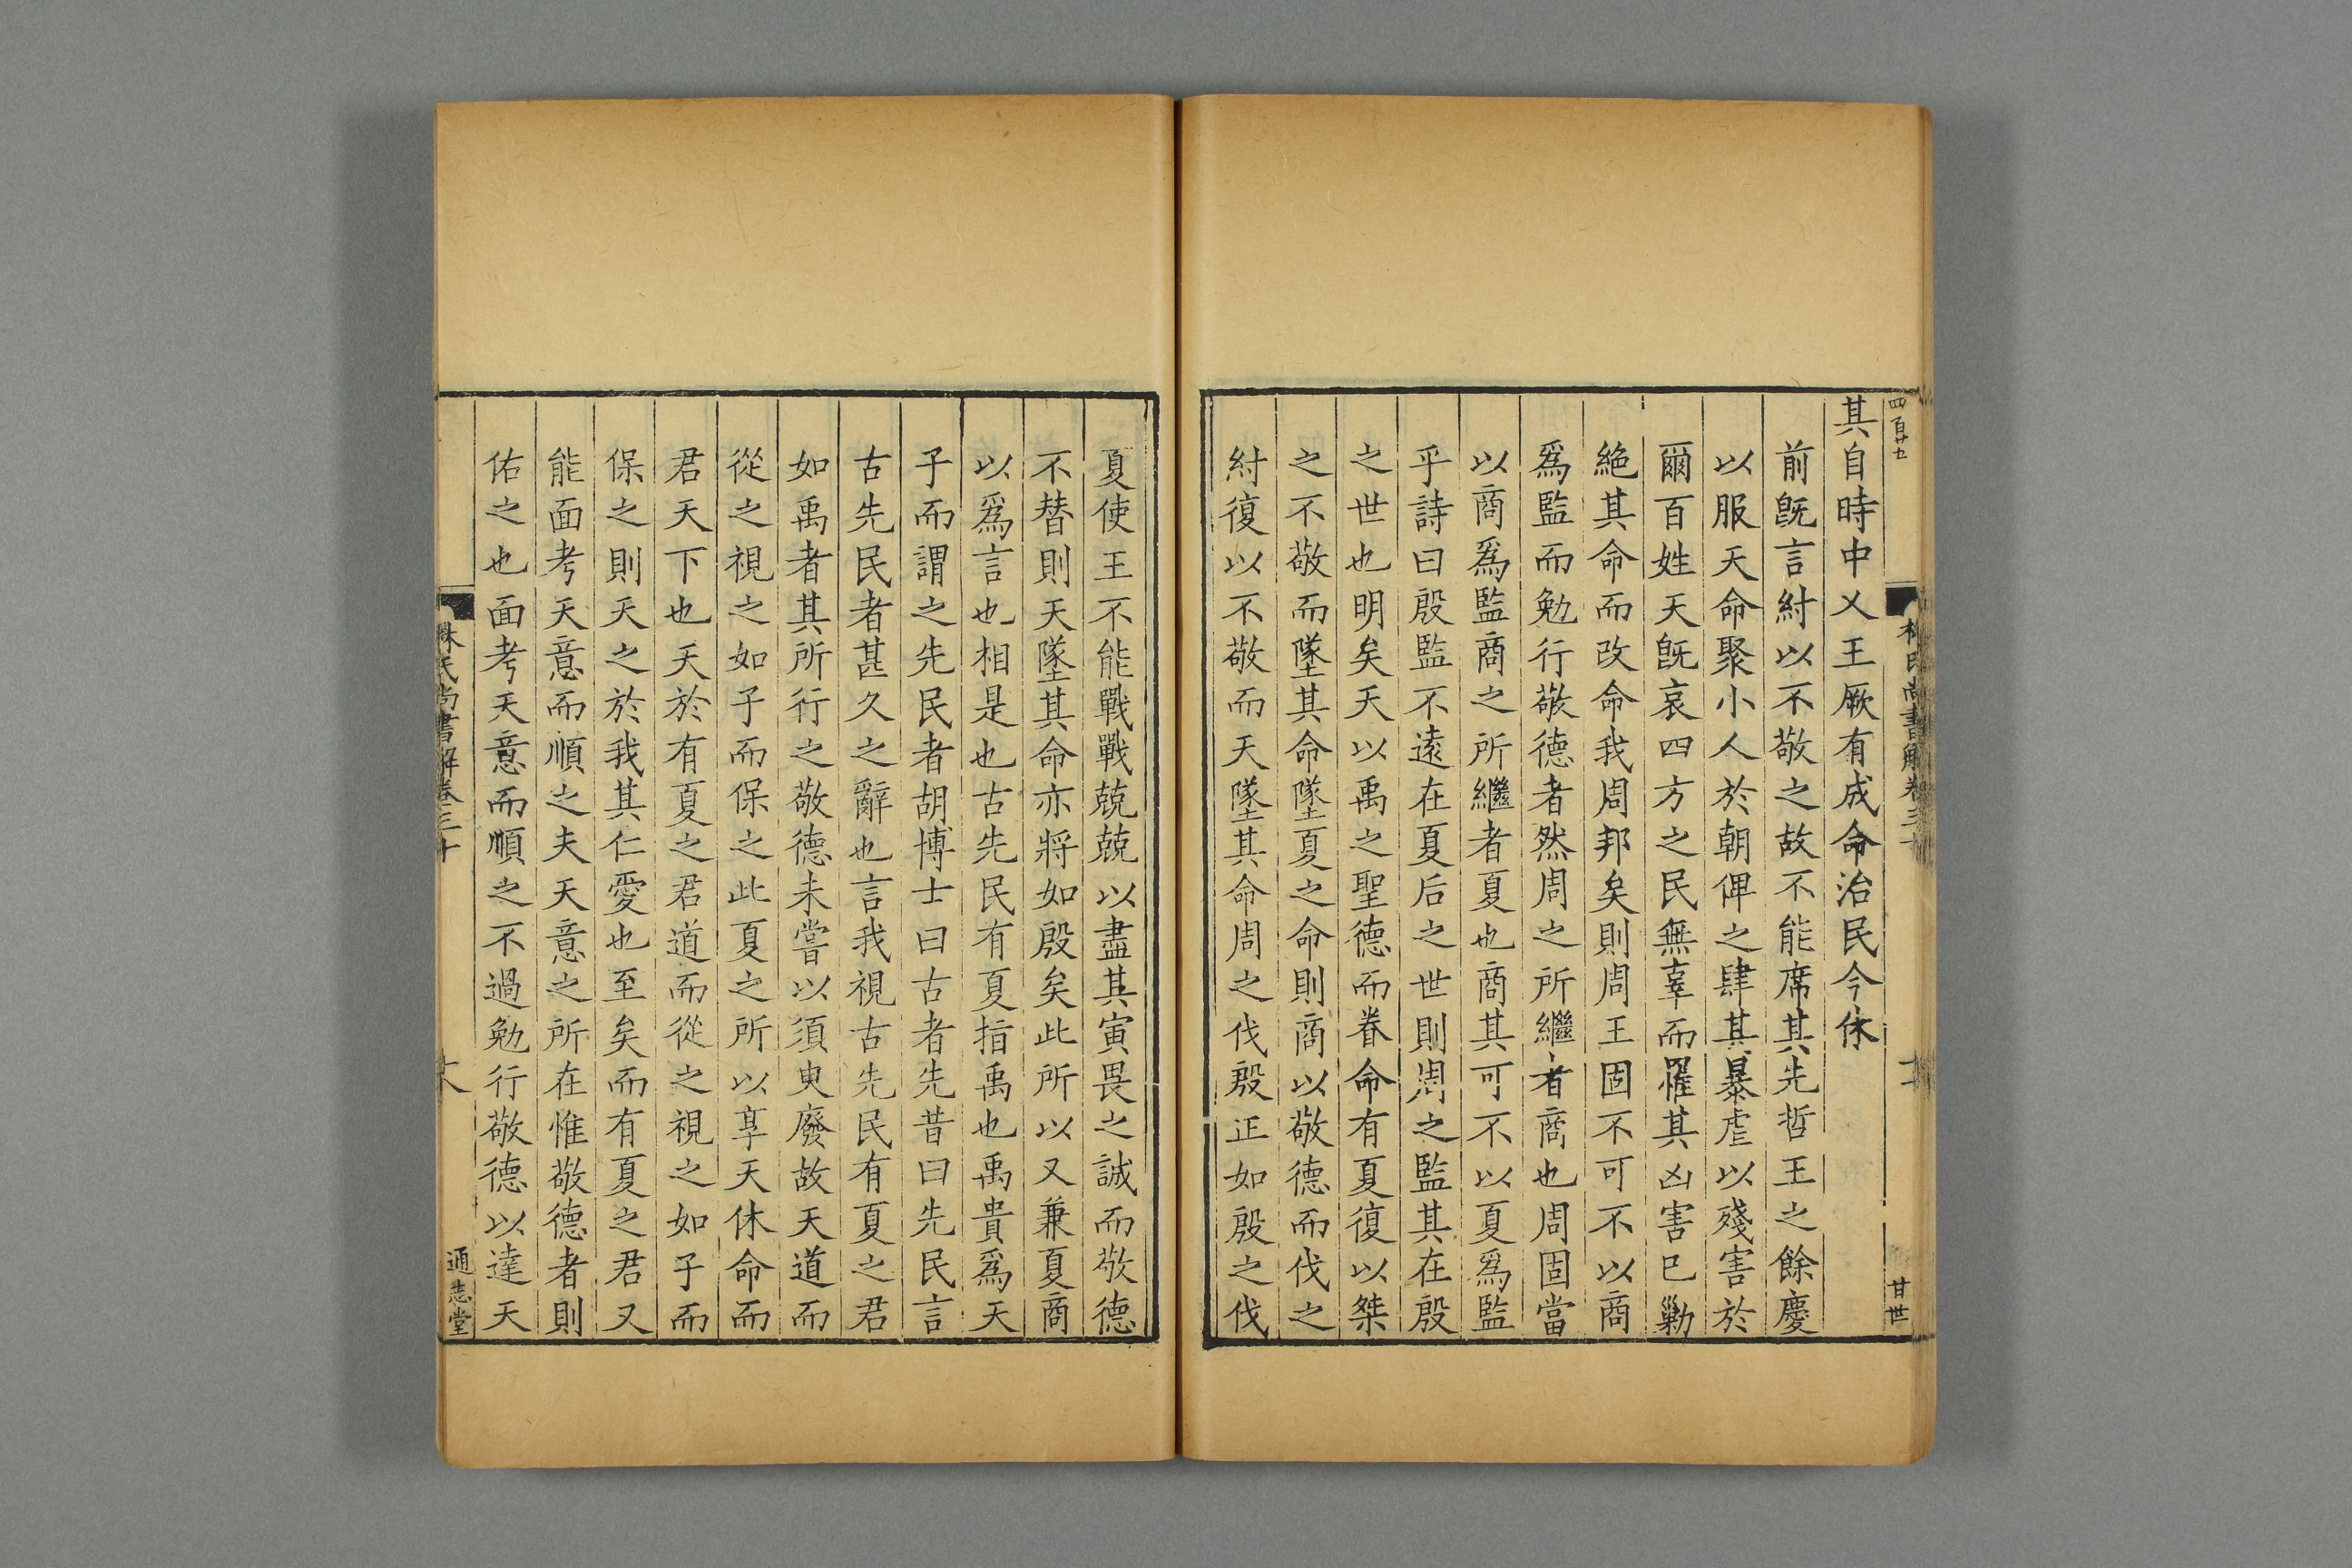 其自時中乂王厥有成命治民今休
前旣言紂以不敬之故不能席其先哲王之餘慶
以服天命聚小人於朝俾之肆其暴虐以殘害於
爾百姓天旣哀四方之民無辜而罹其凶害已勦
絶其命而改命我周邦矣則周王固不可不以商
爲監而勉行敬德者然周之所繼者商也周固當
以商爲監商之所繼者夏也商其可不以夏爲監
乎詩曰殷監不遠在夏后之世則周之監其在殷
之世也明矣天以禹之聖德而眷命有夏復以桀
之不敬而墜其命墜夏之命則商以敬德而伐之
紂復以不敬而天墜其命周之伐殷正如殷之伐
夏使王不能戰戰兢兢以盡其寅畏之誠而敬德
不替則天墜其命亦將如殷矣此所以又兼夏商
以爲言也相是也古先民有夏指禹也禹貴爲天
子而謂之先民者胡博士曰古者先昔曰先民言
古先民者甚久之辭也言我視古先民有夏之君
如禹者其所行之敬德未嘗以須臾廢故天道而
從之視之如子而保之此夏之所以享天休命而
君天下也天於有夏之君道而從之視之如子而
保之則天之於我其仁愛也至矣而有夏之君又
能面考天意而順之夫天意之所在惟敬德者則
佑之也面考天意而順之不過勉行敬德以達天
林氏尚書解卷三十
通志堂